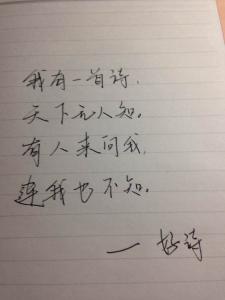 我有一首诗，
天下无人知。
有人来问我，
连我也不知。
— 好诗